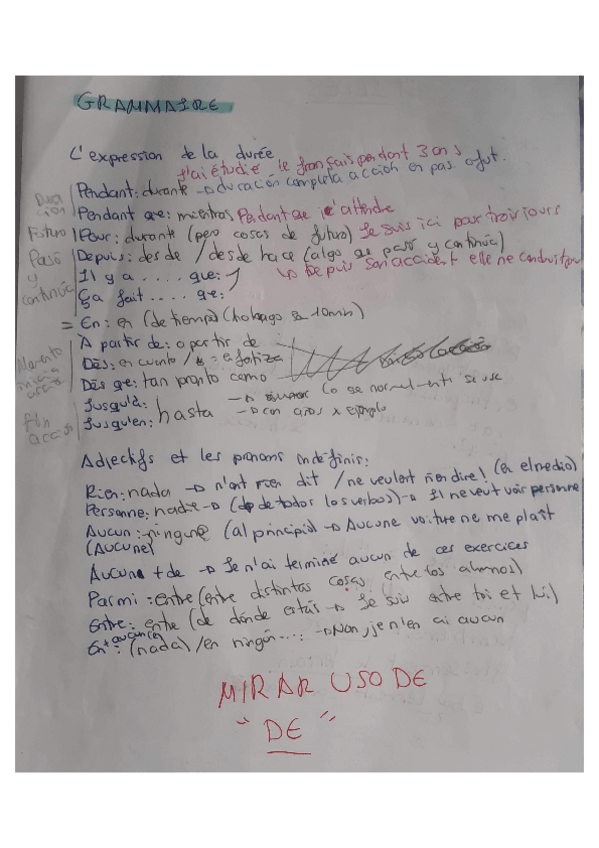 GRAMMAIRE
L'expression de la durée
J'ai étudié le français pendant 3 ans
Pendant: durante → duración completa acción en pas. o fut.
Duración
Pendant que: mientras Pendant que je t'attendre
Futuro
Pour: durante (pero cosas de futuro) Je suis ici pour trois jours
Pasó y continúa
Depuis: desde / desde hace (algo que pasó y continúa)
Il y a .... que: ↳ Depuis son accident elle ne conduit
Ça fait .... que:
= En: en (de tiempo) (lo hago en 10min)
À partir de: a partir de
Momento inicia acción
Dès: en cuanto /
Dès que: tan pronto como
Jusqu'à: → lo que normalmente se usa
hasta
Fin acción
Jusqu'en: → con años x ejemplo
Adjectifs et les pronoms indéfinis:
Rien: nada → n'ont rien dit / ne veulent rien dire! (en el medio)
Personne: nadie → (dp de todos los verbos) → Il ne veut voir personne
Aucun: ningun@ (al principio) → Aucune voiture ne me plaît
(Aucune)
Aucun + de → Je n'ai terminé aucun de ces exercices
Parmi: entre (entre distintas cosas, entre los alumnos)
Entre: entre (de dónde estás → Je suis entre toi et lui)
En + aucun(e): (nada) / en ningún... → Non, je n'en ai aucun
MIRAR USO DE
"DE"